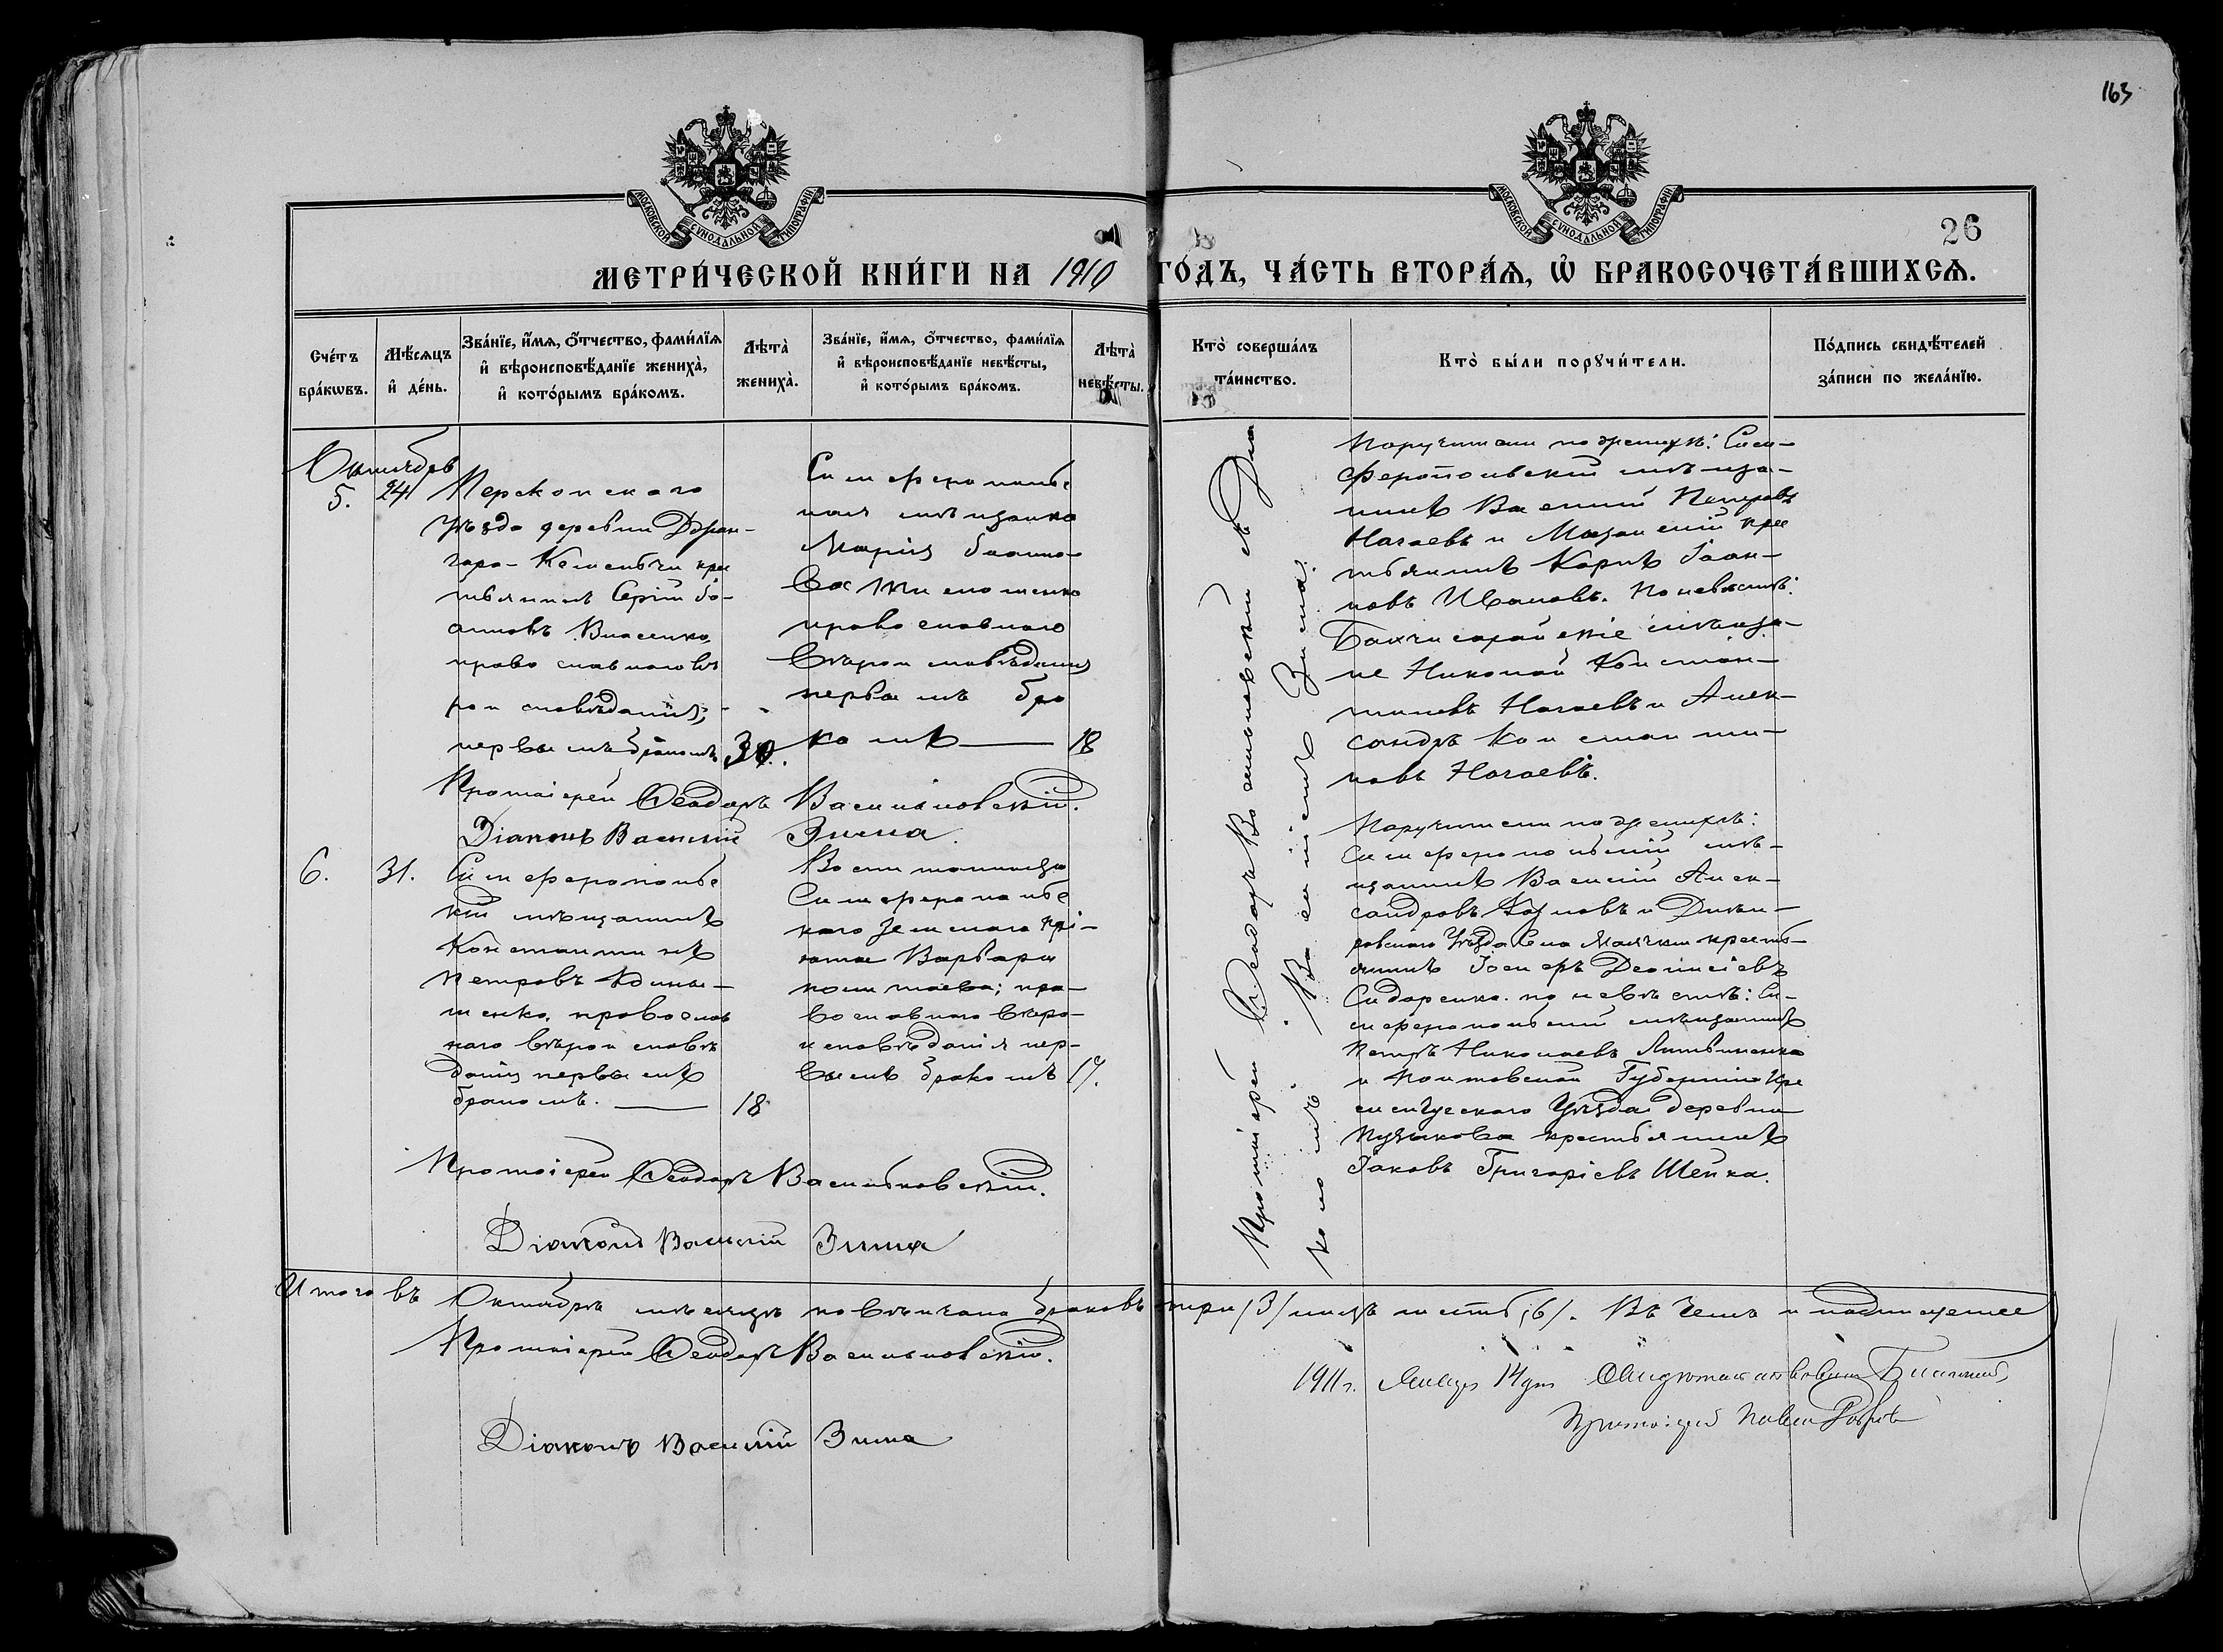 163
МОСКОВСКОЙ СѴНОДАЛЬНОЙ ТИПОГРАФІИ
МОСКОВСКОЙ СѴНОДАЛЬНОЙ ТИПОГРАФІИ
26
МЕТРИ́ЧЕСКОЙ КНИ́ГИ НА 1910 ГО́ДЪ, ЧА́СТЬ ВТОРА́Ѧ, Ѽ БРАКОСОЧЕТА́ВШИХСѦ.
Сче́тъ
бра́кѡвъ.
Мѣ́сѧцъ
и҆ де́нь.
Зва́нїе, и҆́мѧ, ѻ҆́тчество, фами́лїѧ
и҆ вѣроисповѣ́данїе жениха̀,
и҆ кото́рымъ бра́комъ.
Лѣта̀
жениха̀.
Зва́нїе, и҆́мѧ, ѻ҆́тчество, фами́лїѧ
и҆ вѣроисповѣ́данїе невѣ́сты,
и҆ кото́рымъ бра́комъ.
Лѣта̀
невѣ́сты.
Кто̀ соверша́лъ
та́инство.
Кто̀ бы́ли порꙋчи́тели.
По́дпись свидѣ́телей
за́писи по жела́нїю.
Октябрь
5.
24
Перекопскаго
уѣзда деревни Джан-
гара-Кемельчи кре
стьянинъ Сергій Іо-
анновъ Власенко,
православнаго вѣ
роисповѣданія,
первымъ бракомъ
30.
Симферополь
ская мѣщанка
Марія Іоанно-
ва Тимошенко
православнаго
вѣроисповѣданія
первымъ бра
комъ
18
Протоіерей Ѳеодоръ Васильковскій.
Діаконъ Василій Зима.
Поручители по женихѣ: Сим-
феропольскій мѣща-
нинъ Василій Петровъ
Нагаевъ и Мазанскій кре
стьянинъ Карпъ Іоан-
новъ Ивановъ. По невѣстѣ:
Бахчисарайскіе мѣща-
не Николай Констан-
тиновъ Нагаевъ и Алек-
сандръ Константи-
новъ Нагаевъ.
6.
31.
Симферополь
скій мѣщанинъ
Константинъ
Петровъ
православ
наго вѣроисповѣ
данія первымъ
бракомъ.
18
Воспитанница
Симферополь
скаго Земскаго Прі-
юта Варвара
пра-
вославнаго вѣро-
исповѣданія пер-
вымъ бракомъ
17.
Протоіерей Ѳеодоръ Васильковскій.
Діаконъ Василій Зима
Поручители по женихѣ:
Симферопольскій мѣ-
щанинъ Василій Алек-
сандровъ и Днѣп-
ровскаго Уѣзда Села Маячки кресть-
янинъ Іосифъ Діонисіевъ
Сидоренко. по невѣстѣ: Си-
мферопольскій мѣщанинъ
Петръ Николаевъ Литвиненко
и Полтавской Губерніи Кре
менчугскаго Уѣзда деревни
Пузыкова крестьянинъ
Іаковъ Григоріевъ Шейка.
Протоіерей Ѳеодоръ Васильковскій съ Діа
кономъ Василіемъ Зима.
Итого въ Октябрѣ мѣсяцѣ повѣнчано браковъ три (3) лицъ шесть (6). Въ чемъ и подпишемся
Протоіерей Ѳеодоръ Васильковскій.
Діаконъ Василій Зима
1911 г. Января 14 дня Свидѣтельствовалъ Благочинный,
Протоіерей Павелъ